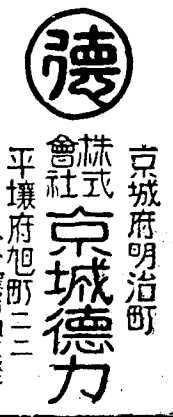 德
京城府明治町
株式會社
京城德力
平壤府旭町二二